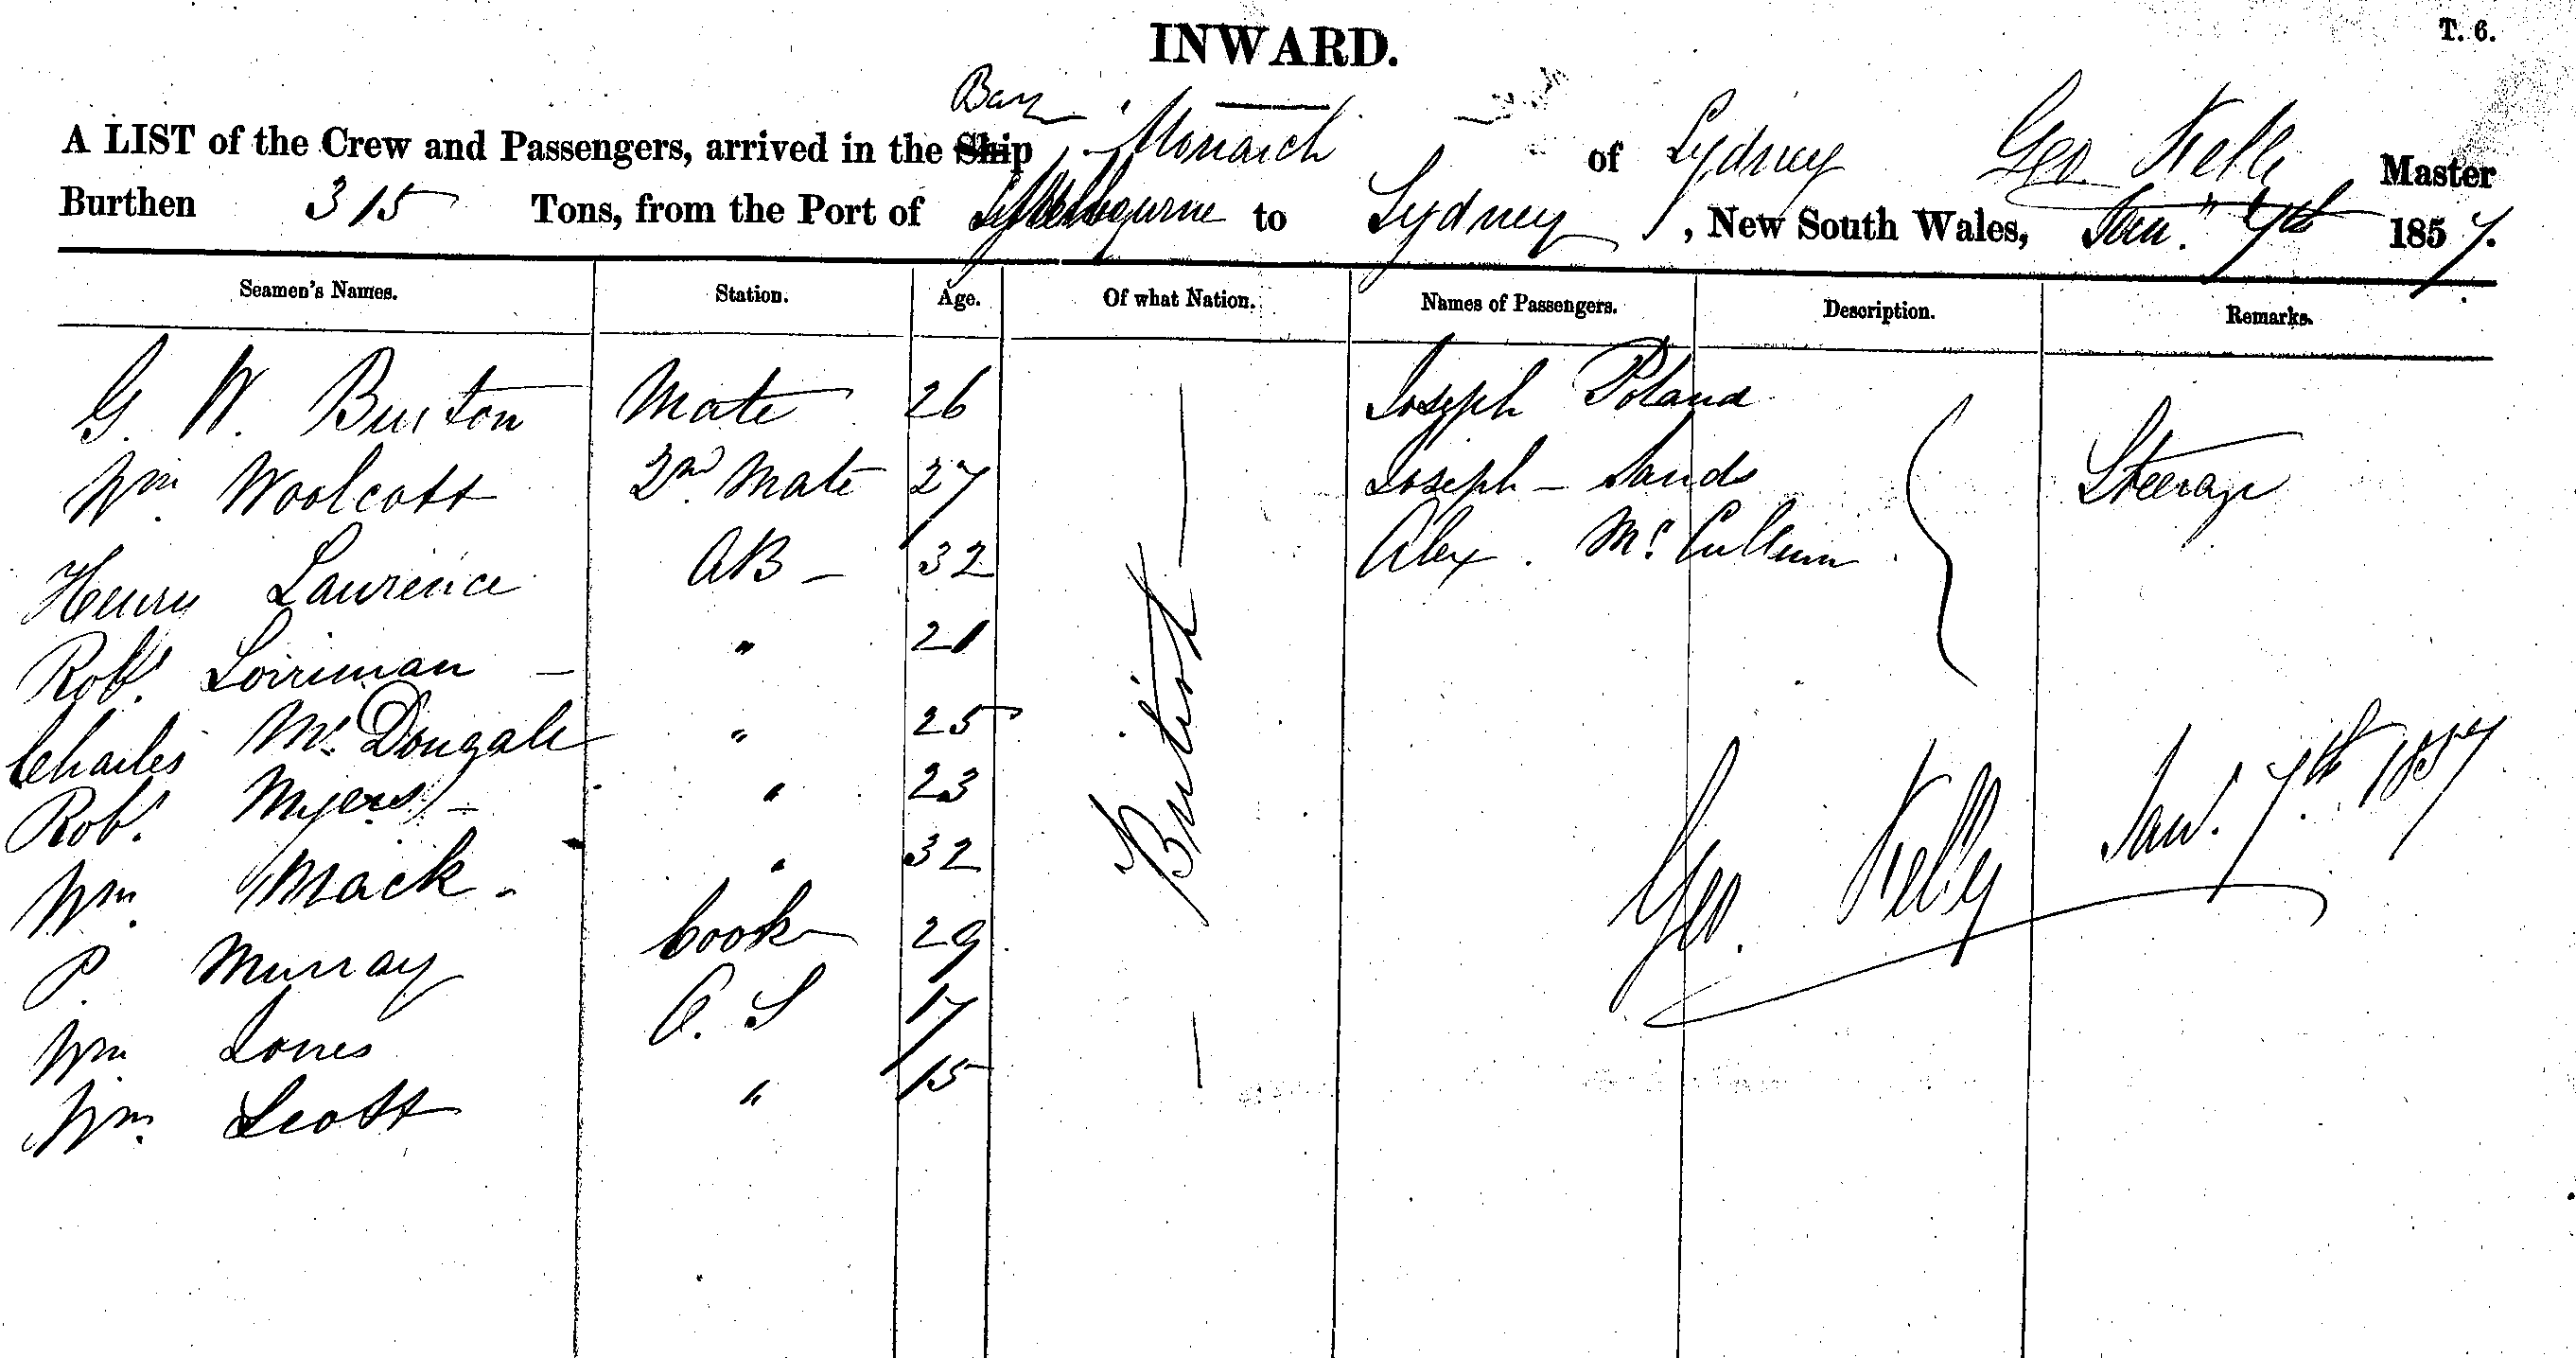 INWARD.
T. 6.
Barq
A LIST of the Crew and Passengers, arrived in the Ship Monarch of Sydney Geo. Kelly Master
Burthen 315 Tons, from the Port of Melbourne to Sydney, New South Wales, Jan. 7th 1857.
Seamen's Names. Station. Age. Of what Nation. Names of Passengers. Description. Remarks.
G. W. Burton Mate 26 Joseph Poland
Wm. Woolcott 2nd Mate 27 Joseph - Sands Steerage
Henry Lawrence AB - 32 Alex. McCullum
Robt. Lorriman - " 21
Charles McDougall " 25
Robt. Myers - " 23
Wm. Mack - " 32
British
P. Murray Cook 29
Geo. Kelly Jan. 7th. 1857
Wm Jones O. S 17
Wm. Scott " 15